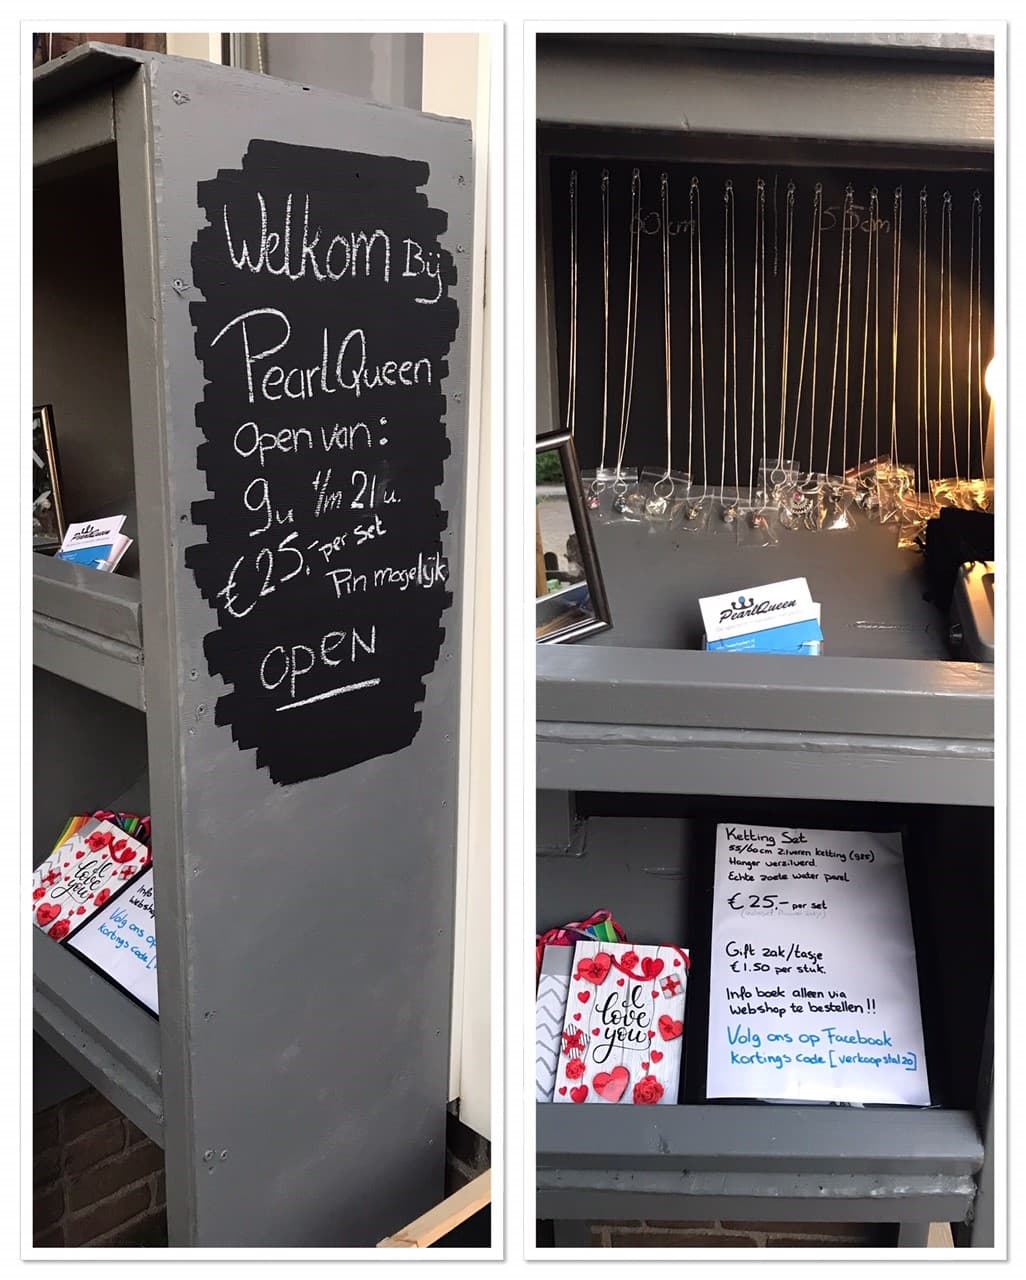 Welkom Bij
PearlQueen
open van:
9u t/m 21u.
€25,- per set
Pin mogelijk
open
PearlQueen
I
love
you
Info
Webshop
Volg ons op
kortings code [
60cm
55cm
PearlQueen
Ketting Set
55/60cm zilveren ketting (925)
Hanger verzilverd
Echte zoete water parel
€ 25,- per set
Gift zak/tasje
€ 1.50 per stuk.
Info boek alleen via
Webshop te bestellen!!
Volg ons op Facebook
kortings code [verkoopstal20]
I
love
you